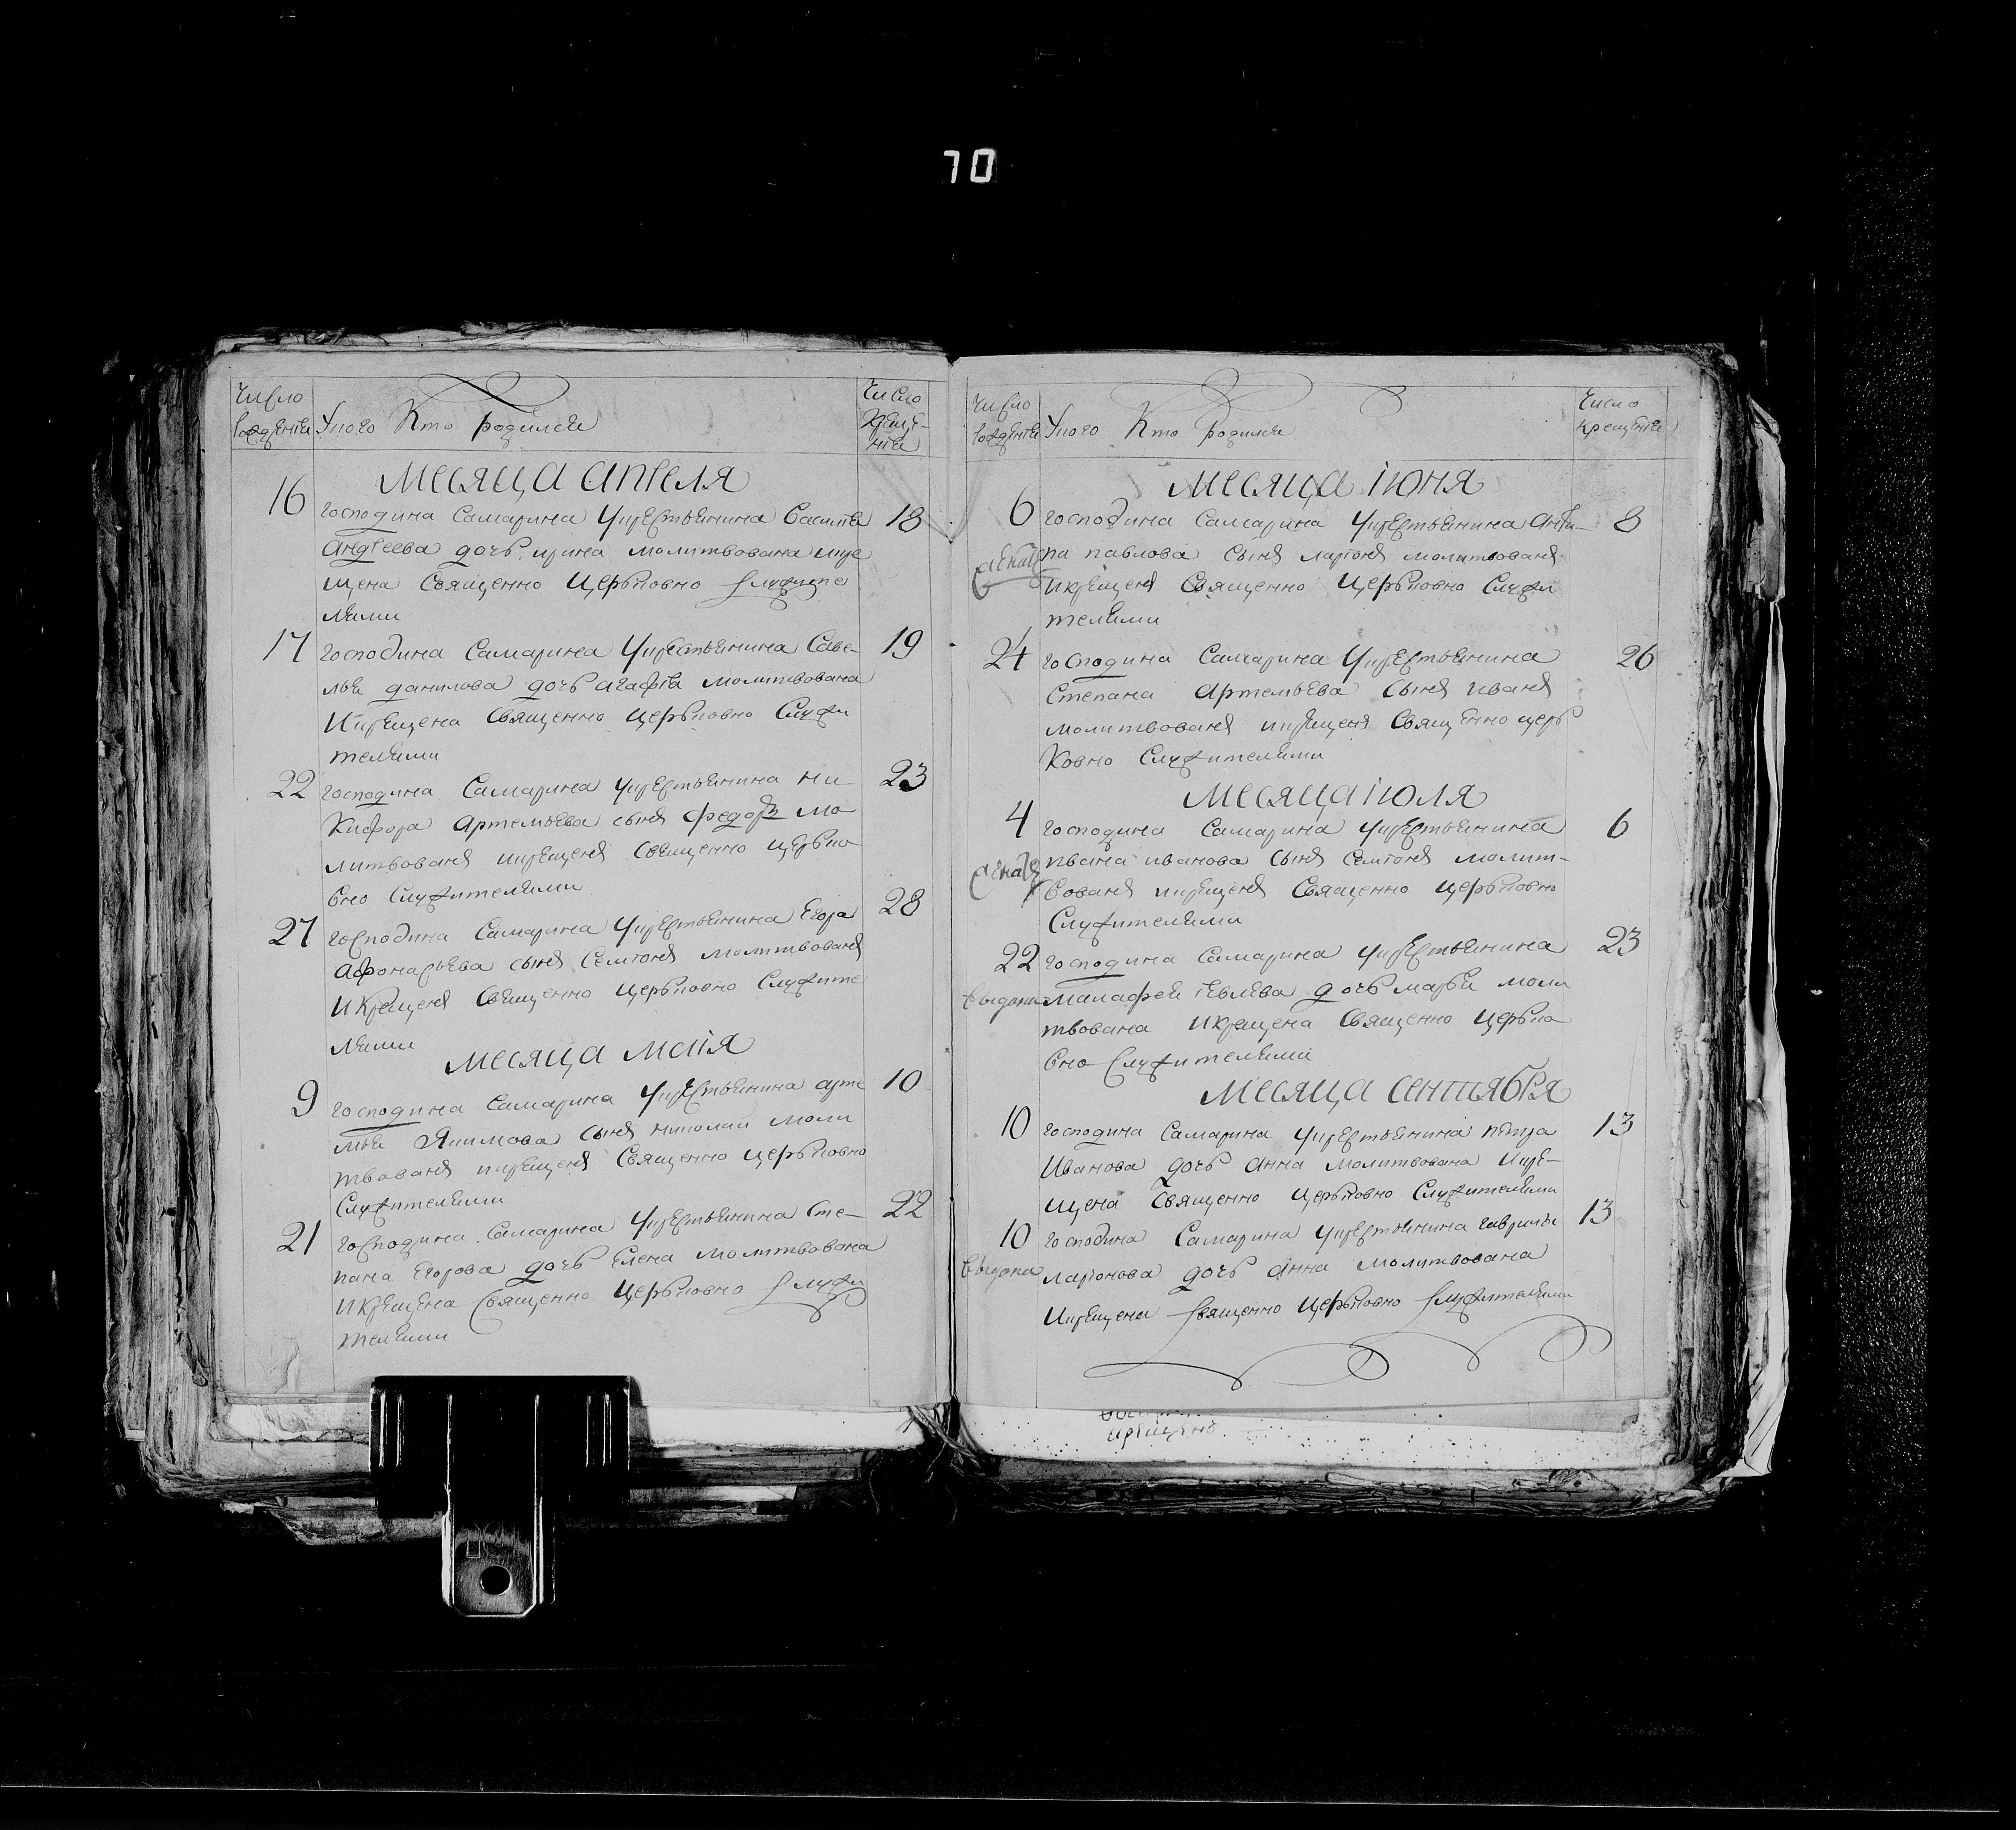 70
Число
рождения
У кого Кто родился
Число
креще-
ния
Месяца апреля
16 господина Самарина Укрестьянина Василия 18
андреева дочь ирина молитвована икре
щена Священно Церковно Служите
лями
17 господина Самарина Укрестьянина Саве- 19
лья данилова дочь агафия молитвована
Икрещена Священно Церковно Служи
телями
22 господина Самарина укрестьянина ни- 23
кифора артемьева сынъ федоръ мо-
литвованъ икрещенъ Священно церько-
вно Служителями
27 господина Самарина Укрестьянина Егора 28
афонасьева сынъ Семионъ молитвованъ
Икрещенъ Священно церьковно Служите
лями
месяца маия
9 господина Самарина Укрестьянина арте 10
мья Якимова Сынъ николай моли
твованъ икрещенъ Священно церьковно
Служителями
21 господина Самарина Укрестьянина Сте- 22
пана Егорова дочь Елена молитвована
Икрещена Священно Церьковно Служи
телями
Число
рождения
У кого Кто родился
Число
крещения
Месяца июня
6 господина Самарина Укрестьянина анти- 8
па павлова Сынъ ларионъ молитвованъ
Икрещенъ Священно Церьковно Служи
телями
24 господина Самарина Укрестьянина 26
Степана Артемьева Сынъ иванъ
молитвованъ икрещенъ Священно церь
ковно Служителями
Месяца июля
4 господина Самарина Укрестьянина 6
ивана иванова Сынъ Семионъ молит-
вованъ икрещенъ Священно церьковно
Служителями
22 господина Самарина Укрестьянина 23
выдана малафея иевлева дочь марья моли
твована Икрещена Священно Церько-
вно Служителями
Месяца сентября
10 господина Самарина Укрестьянина петра 13
Иванова дочь анна молитвована Икре-
щена Священно Церьковно Служителями
10 господина Самарина Укрестьянина гаврилы 13
выдана ларионова дочь анна молитвована
Икрещена Священно Церьковно Служителями
крещено